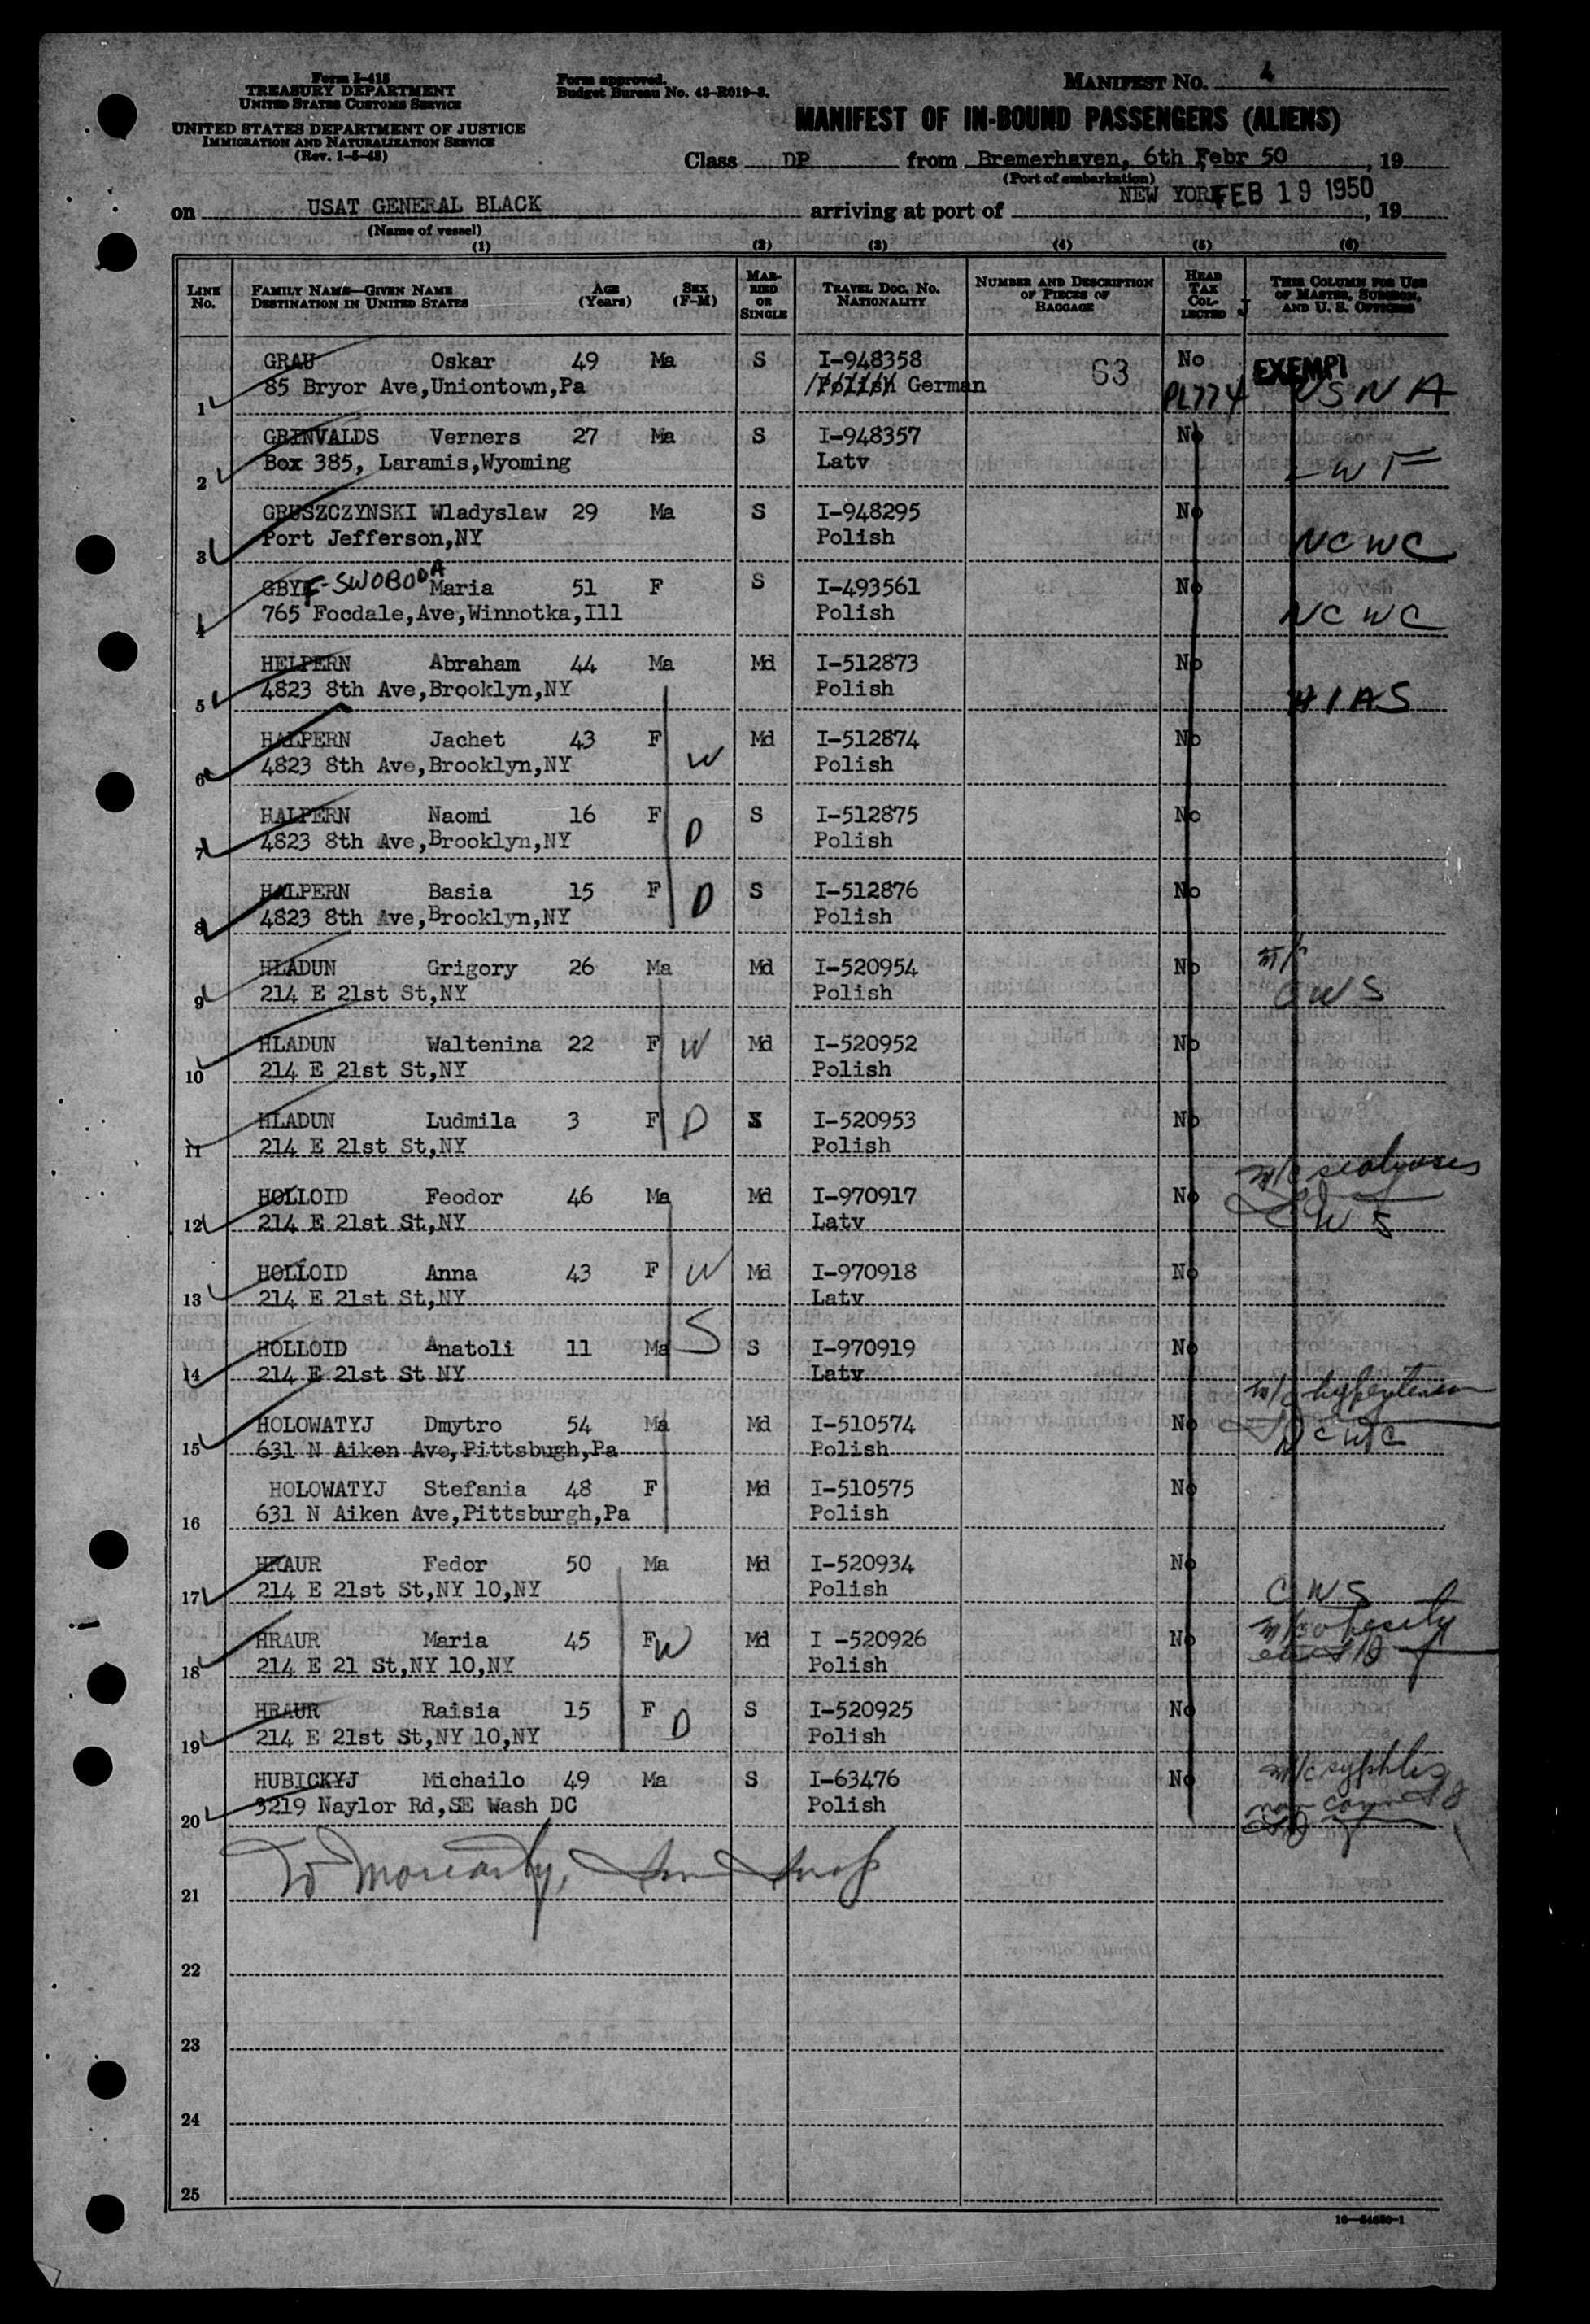 Form I-415
TREASURY DEPARTMENT
UNITED STATES CUSTOMS SERVICE
UNITED STATES DEPARTMENT OF JUSTICE
IMMIGRATION AND NATURALIZATION SERVICE
(Rev. 1-5-48)
Form approved.
Budget Bureau No. 43-R019-3.
MANIFEST NO. 4
MANIFEST OF IN-BOUND PASSENGERS (ALIENS)
Class DP from Bremerhaven, 6th Febr 50, 19
(Port of embarkation)
on USAT GENERAL BLACK arriving at port of NEW YORK FEB 19 1950, 19
(Name of vessel)
(1) (2) (3) (4) (5) (6)
LINE No. FAMILY NAME—GIVEN NAME DESTINATION IN UNITED STATES AGE (Years) SEX (F-M) MARRIED OR SINGLE TRAVEL DOC. NO. NATIONALITY NUMBER AND DESCRIPTION OF PIECES OF BAGGAGE HEAD TAX COLLECTED THIS COLUMN FOR USE OF MASTER, SURGEON, AND U. S. OFFICERS
GRAU Oskar 49 Ma S I-948358 63 No EXEMPT
1 85 Bryor Ave,Uniontown,Pa German PL774 USNA
GRINVALDS Verners 27 Ma S I-948357 No
2 Box 385, Laramis,Wyoming Latv LWF
GRUSZCZYNSKI Wladyslaw 29 Ma S I-948295 No
3 Port Jefferson,NY Polish NCWC
GBYF-SWOBODA Maria 51 F S I-493561 No
4 765 Focdale,Ave,Winnotka,Ill Polish NCWC
HELPERN Abraham 44 Ma Md I-512873 No
5 4823 8th Ave,Brooklyn,NY Polish HIAS
HALPERN Jachet 43 F W Md I-512874 No
6 4823 8th Ave,Brooklyn,NY Polish
HALPERN Naomi 16 F D S I-512875 No
7 4823 8th Ave,Brooklyn,NY Polish
HALPERN Basia 15 F D S I-512876 No
8 4823 8th Ave,Brooklyn,NY Polish
HLADUN Grigory 26 Ma Md I-520954 No m/c
9 214 E 21st St,NY Polish CWS
HLADUN Waltenina 22 F W Md I-520952 No
10 214 E 21st St,NY Polish
HLADUN Ludmila 3 F D S I-520953 No
11 214 E 21st St,NY Polish
HOLLOID Feodor 46 Ma Md I-970917 No m/c
12 214 E 21st St,NY Latv CWS
HOLLOID Anna 43 F W Md I-970918 No
13 214 E 21st St,NY Latv
HOLLOID Anatoli 11 Ma S S I-970919 No
14 214 E 21st St NY Latv
HOLOWATYJ Dmytro 54 Ma Md I-510574 No m/c hypertension
15 631 N Aiken Ave,Pittsbugh,Pa Polish NCWC
HOLOWATYJ Stefania 48 F Md I-510575 No
16 631 N Aiken Ave,Pittsburgh,Pa Polish
HRAUR Fedor 50 Ma Md I-520934 No
17 214 E 21st St,NY 10,NY Polish CWS
HRAUR Maria 45 F W Md I -520926 No m/c obesity
18 214 E 21 St,NY 10,NY Polish
HRAUR Raisia 15 F D S I-520925 No
19 214 E 21st St,NY 10,NY Polish
HUBICKYJ Michailo 49 Ma S I-63476 No m/c syphilis
20 3219 Naylor Rd,SE Wash DC Polish
21 Moriarty,
22
23
24
25
16—54650-1